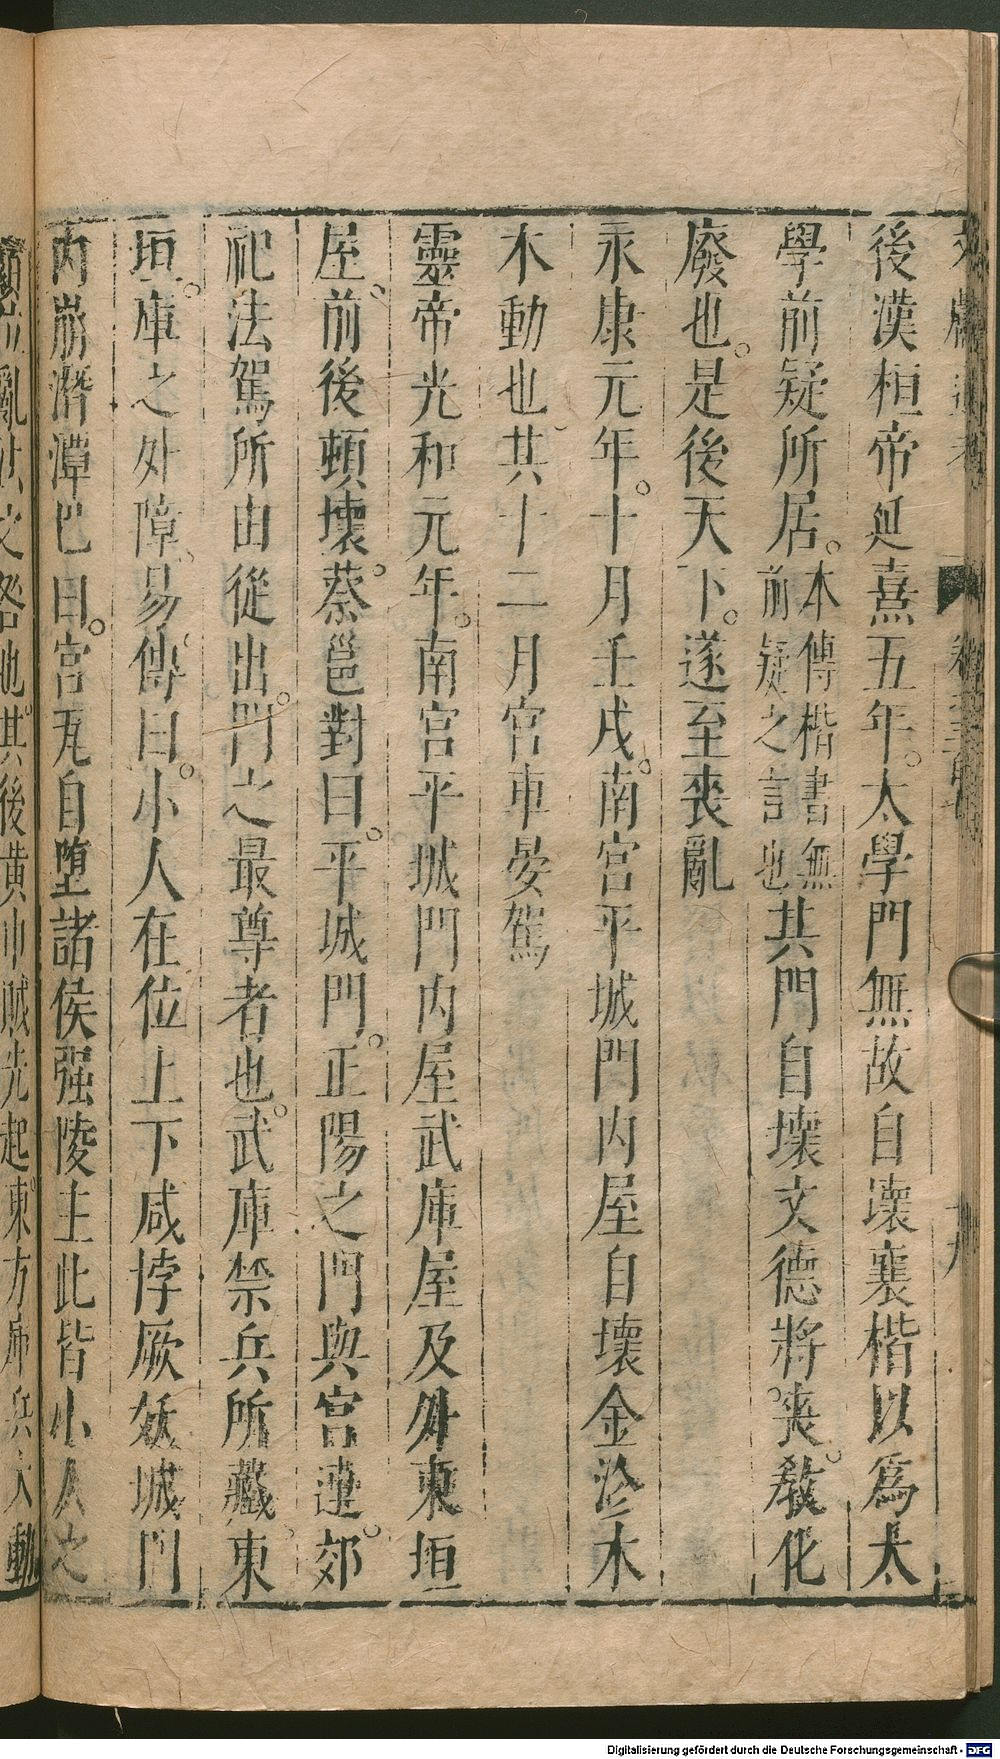 後漢桓帝延熹五年。太學門無故自壞襄楷以爲太
學前疑所居。本傳楷書無前疑之言也共門自壞文德將喪。敎化
廢也。是後天下。遂至喪亂
永康元年。十月壬戌。南宮平城門内屋自壞金沴木
木動也共十二月宮車晏駕
靈帝光和元年。南宮平城門内屋武庫屋及外東垣
屋。前後頓壞。蔡邕對曰。平城門。正陽之門與宮連。郊
祀法駕所由從出。門之最尊者也。武庫禁兵所藏東
垣。庫之外障。易傳曰。小人在位上下咸悖厥妖城門
内崩潛潭巴曰。宮瓦自堕諸侯强陵主此皆小人之
亂也。其後黄巾賊先起。東方庫兵大動
Digitalisierung gefördert durch die Deutsche Forschungsgemeinschaft - DFG